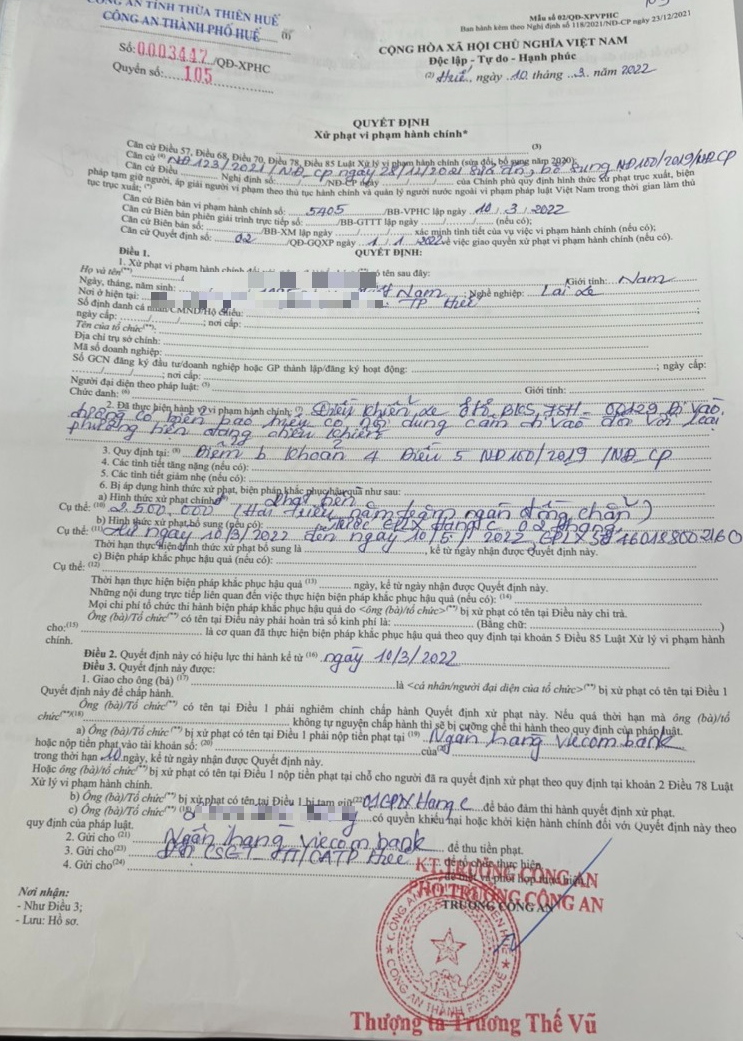 CÔNG AN TỈNH THỪA THIÊN HUẾ
CÔNG AN THÀNH PHỐ HUẾ (1)
Số: 0003447 /QĐ-XPHC
Quyển số: 105
Mẫu số 02/QĐ-XPVPHC
Ban hành kèm theo Nghị định số 118/2021/NĐ-CP ngày 23/12/2021
CỘNG HÒA XÃ HỘI CHỦ NGHĨA VIỆT NAM
Độc lập - Tự do - Hạnh phúc
(2) Huế, ngày 10 tháng 3 năm 2022
QUYẾT ĐỊNH
Xử phạt vi phạm hành chính*
(3)
Căn cứ Điều 57, Điều 68, Điều 70, Điều 78, Điều 85 Luật Xử lý vi phạm hành chính (sửa đổi, bổ sung năm 2020);
Căn cứ (4) NĐ 123/2021/NĐ_cp ngày 28/12/2021 sửa đổi, bổ sung NĐ100/2019/NĐ_CP
Căn cứ Điều ... Nghị định số: .../.../NĐ-CP ngày .../.../... của Chính phủ quy định hình thức xử phạt trục xuất, biện
pháp tạm giữ người, áp giải người vi phạm theo thủ tục hành chính và quản lý người nước ngoài vi phạm pháp luật Việt Nam trong thời gian làm thủ
tục trục xuất; (*)
Căn cứ Biên bản vi phạm hành chính số: 5405 /BB-VPHC lập ngày 10 / 3 / 2022
Căn cứ Biên bản phiên giải trình trực tiếp số: .../BB-GTTT lập ngày .../.../... (nếu có);
Căn cứ Biên bản số: .../BB-XM lập ngày .../.../... xác minh tình tiết của vụ việc vi phạm hành chính (nếu có);
Căn cứ Quyết định số: 02 /QĐ-GQXP ngày 1 / 1 / 2022 về việc giao quyền xử phạt vi phạm hành chính (nếu có).
QUYẾT ĐỊNH:
Điều 1.
1. Xử phạt vi phạm hành chính đối có tên sau đây:
Họ và tên(**): Giới tính: Nam
Ngày, tháng, năm sinh: Nam; Nghề nghiệp: Lái xe
Nơi ở hiện tại: TP Huế
Số định danh cá nhân/CMND/Hộ chiếu: ...;
ngày cấp: .../.../...; nơi cấp: ...
Tên của tổ chức(**): ...
Địa chỉ trụ sở chính: ...
Mã số doanh nghiệp: ...
Số GCN đăng ký đầu tư/doanh nghiệp hoặc GP thành lập/đăng ký hoạt động: ...; ngày cấp:
.../.../...; nơi cấp: ...
Người đại diện theo pháp luật: (5) ... Giới tính: ...
Chức danh: (6) ...
2. Đã thực hiện hành vi vi phạm hành chính: Điều khiển xe ôtô BKS 75H-00129 đi vào
đường có biển báo hiệu có nội dung cấm đi vào đối với loại
phương tiện đang điều khiển
3. Quy định tại: (8) Điểm b khoản 4 Điều 5 NĐ100/2019 /NĐ_CP
4. Các tình tiết tăng nặng (nếu có): ...
5. Các tình tiết giảm nhẹ (nếu có): ...
6. Bị áp dụng hình thức xử phạt, biện pháp khắc phục hậu quả như sau:
a) Hình thức xử phạt chính(9) phạt tiền
Cụ thể: (10) 2.500.000 (Hai triệu năm trăm ngàn đồng chẵn)
b) Hình thức xử phạt bổ sung (nếu có): Tước GPLX hạng C 02 tháng
Cụ thể: (11) từ ngày 10/3/2022 đến ngày 10/5/2022 GPLX số 460188002160
Thời hạn thực hiện hình thức xử phạt bổ sung là ..., kể từ ngày nhận được Quyết định này.
c) Biện pháp khắc phục hậu quả (nếu có): ...
Cụ thể: (12) ...
Thời hạn thực hiện biện pháp khắc phục hậu quả (13) ... ngày, kể từ ngày nhận được Quyết định này.
Những nội dung trực tiếp liên quan đến việc thực hiện biện pháp khắc phục hậu quả (nếu có): (14) ...
Mọi chi phí tổ chức thi hành biện pháp khắc phục hậu quả do <ông (bà)/tổ chức>(**) bị xử phạt có tên tại Điều này chi trả.
Ông (bà)/Tổ chức(**) có tên tại Điều này phải hoàn trả số kinh phí là: ... (Bằng chữ: ...)
cho:(15) ... là cơ quan đã thực hiện biện pháp khắc phục hậu quả theo quy định tại khoản 5 Điều 85 Luật Xử lý vi phạm hành
chính.
Điều 2. Quyết định này có hiệu lực thi hành kể từ (16) ngày 10/3/2022
Điều 3. Quyết định này được:
1. Giao cho ông (bà) (17) ... là <cá nhân/người đại diện của tổ chức>(**) bị xử phạt có tên tại Điều 1
Quyết định này để chấp hành.
Ông (bà)/Tổ chức(**) có tên tại Điều 1 phải nghiêm chỉnh chấp hành Quyết định xử phạt này. Nếu quá thời hạn mà ông (bà)/tổ
chức(**)(18) ... không tự nguyện chấp hành thì sẽ bị cưỡng chế thi hành theo quy định của pháp luật.
a) Ông (bà)/Tổ chức(**) bị xử phạt có tên tại Điều 1 phải nộp tiền phạt tại (19) Ngân hàng viecombank
hoặc nộp tiền phạt vào tài khoản số: (20) ... của(21) ...
trong thời hạn 10 ngày, kể từ ngày nhận được Quyết định này.
Hoặc ông (bà)/tổ chức(**) bị xử phạt có tên tại Điều 1 nộp tiền phạt tại chỗ cho người đã ra quyết định xử phạt theo quy định tại khoản 2 Điều 78 Luật
Xử lý vi phạm hành chính.
b) Ông (bà)/Tổ chức(**) bị xử phạt có tên tại Điều 1 bị tạm giữ(22) 01 GPLX Hạng C để bảo đảm thi hành quyết định xử phạt.
c) Ông (bà)/Tổ chức(**) có quyền khiếu nại hoặc khởi kiện hành chính đối với Quyết định này theo
quy định của pháp luật.
2. Gửi cho (21) Ngân hàng viecombank để thu tiền phạt.
3. Gửi cho(23) Đội CSGT-TT/CATP Huế để tổ chức thực hiện.
4. Gửi cho(24) ... để biết và phối hợp thực hiện
Nơi nhận:
- Như Điều 3;
- Lưu: Hồ sơ.
KT.TRƯỞNG CÔNG AN
PHÓ TRƯỞNG CÔNG AN
TRƯỞNG CÔNG AN
CÔNG AN THÀNH PHỐ HUẾ
Thượng tá Trương Thế Vũ